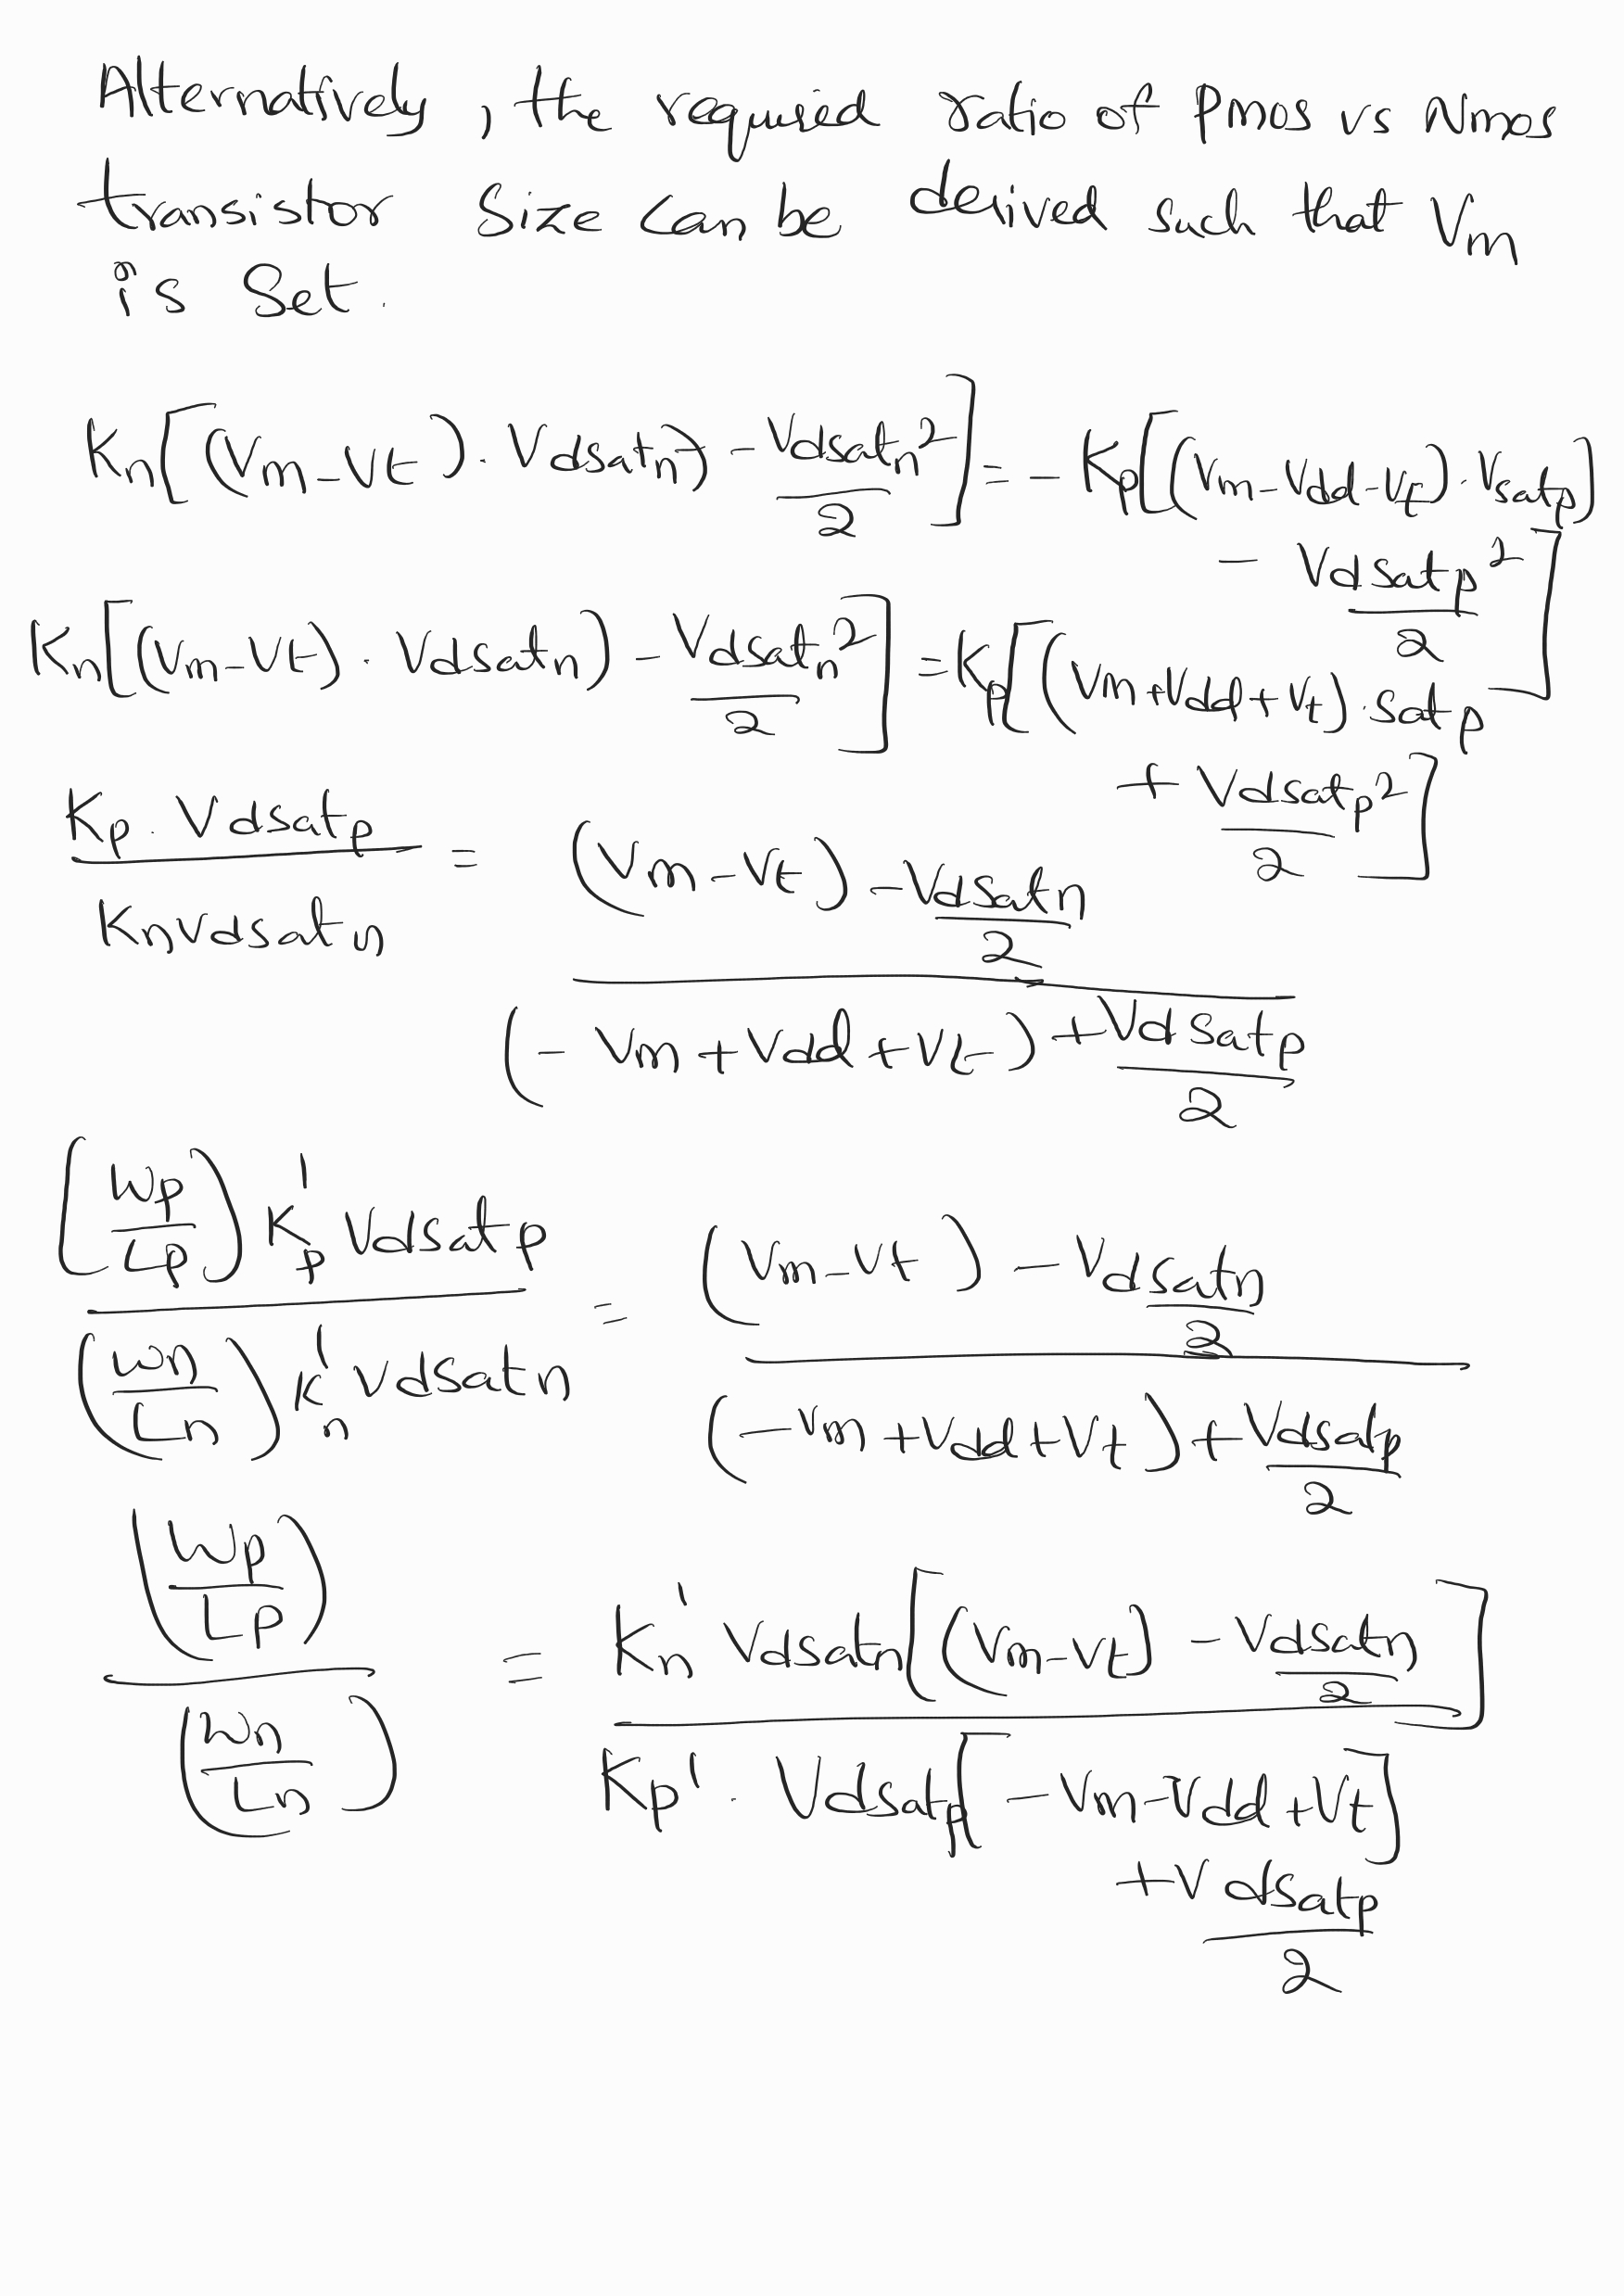 Alternatively, the required ratio of Pmos vs Nmos
transistor Size can be derived such that Vm
is Set.
Kn[(Vm-Vt).Vdsatn) - Vdsatn²/2] = - Kp[(Vm-Vdd-Vt).Vsatp)
- Vdsatp²/2]
Kn[(Vm-Vt).Vdsatn) - Vdsatn²/2] = Kp[(Vm+Vdd+Vt).satp
+ Vdsatp²/2]
Kp.Vdsatp / KnVdsatn = ((Vm-Vt) - Vdsatn/2) / ((-Vm+Vdd+Vt) + Vdsatp/2)
(Wp/Lp) K'p Vdsatp / (Wn/Ln) K'n Vdsatn = ((Vm-Vt) - Vdsatn/2) / ((-Vm+Vdd+Vt) + Vdsatp/2)
(Wp/Lp) / (Wn/Ln) = Kn' Vdsatn[(Vm-Vt) - Vdsatn/2] / Kp'.Vdsatp[-Vm-Vdd+Vt]
+Vdsatp/2